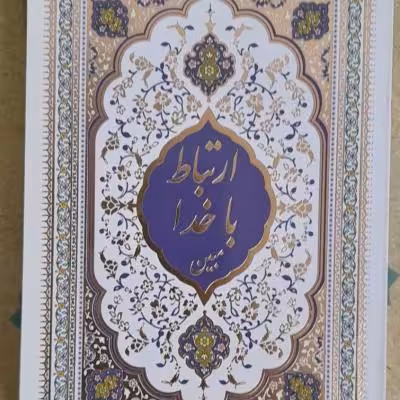 ارتباط
با خدا
مبین